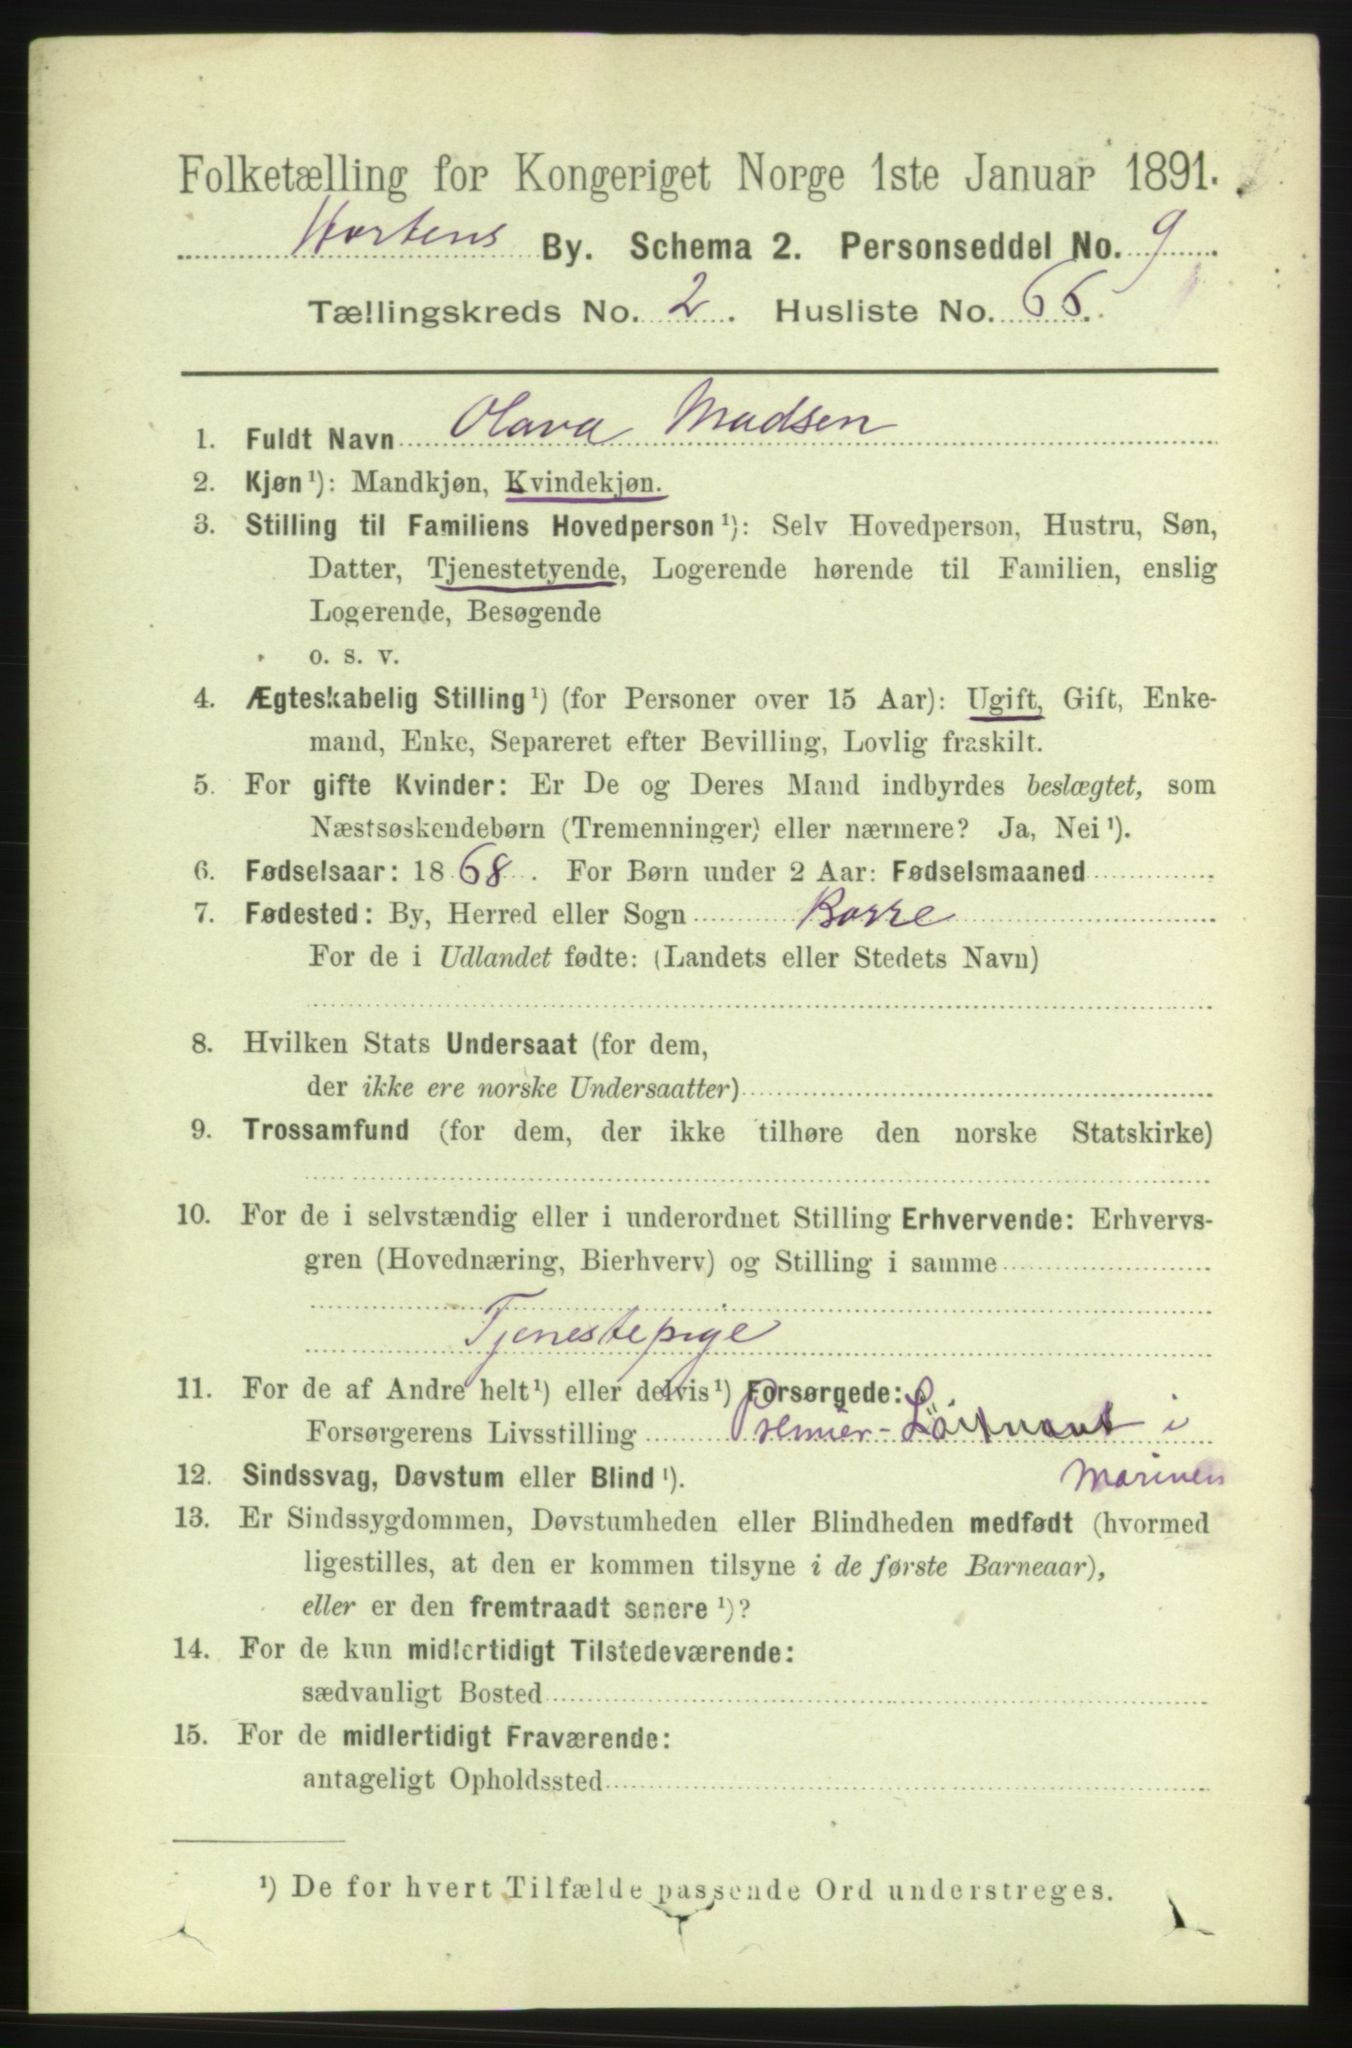 Folketælling for Kongeriget Norge 1ste Januar 1891.
Hortens By. Schema 2. Personseddel No. 9
Tællingskreds No. 2. Husliste No. 66.
1. Fuldt Navn Olava Madsen
2. Kjøn¹): Mandkjøn, Kvindekjøn.
3. Stilling til Familiens Hovedperson¹): Selv Hovedperson, Hustru, Søn,
Datter, Tjenestetyende, Logerende hørende til Familien, enslig
Logerende, Besøgende
o. s. v.
4. Ægteskabelig Stilling¹) (for Personer over 15 Aar): Ugift, Gift, Enke-
mand, Enke, Separeret efter Bevilling, Lovlig fraskilt.
5. For gifte Kvinder: Er De og Deres Mand indbyrdes beslægtet, som
Næstsøskendebørn (Tremenninger) eller nærmere? Ja, Nei¹).
6. Fødselsaar: 1868. For Børn under 2 Aar: Fødselsmaaned
7. Fødested: By, Herred eller Sogn Borre
For de i Udlandet fødte: (Landets eller Stedets Navn)
8. Hvilken Stats Undersaat (for dem,
der ikke ere norske Undersaatter)
9. Trossamfund (for dem, der ikke tilhøre den norske Statskirke)
10. For de i selvstændig eller i underordnet Stilling Erhvervende: Erhvervs-
gren (Hovednæring, Bierhverv) og Stilling i samme
Tjenestepige
11. For de af Andre helt¹) eller delvis¹) Forsørgede:
Forsørgerens Livsstilling Premier-Löitnant i
Marinen
12. Sindssvag, Døvstum eller Blind¹).
13. Er Sindssygdommen, Døvstumheden eller Blindheden medfødt (hvormed
ligestilles, at den er kommen tilsyne i de første Barneaar),
eller er den fremtraadt senere¹)?
14. For de kun midlertidigt Tilstedeværende:
sædvanligt Bosted
15. For de midlertidigt Fraværende:
antageligt Opholdssted
¹) De for hvert Tilfælde passende Ord understreges.